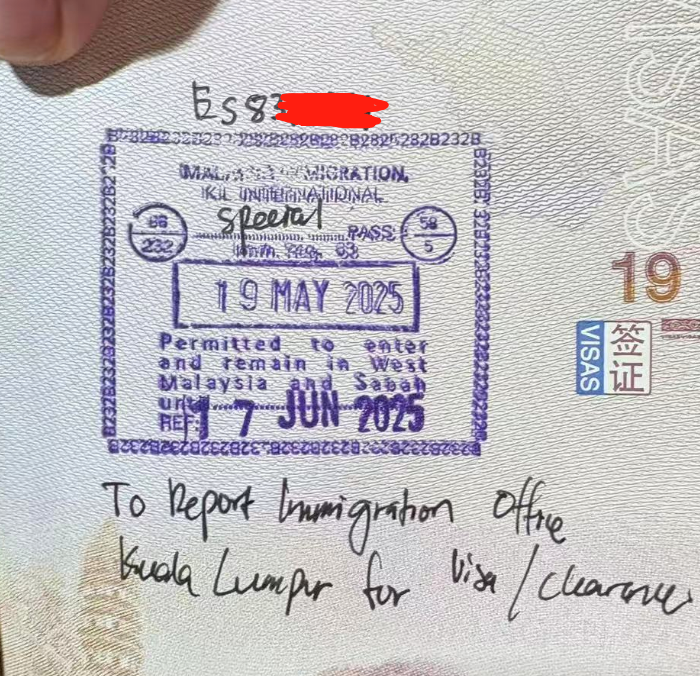 ES83
MALAYSIA IMMIGRATION
KL INTERNATIONAL
Special
PASS
66
232
59
5
Imm. Reg. 63
19 MAY 2025
Permitted to enter
and remain in West
Malaysia and Sabah
until
17 JUN 2025
REF:
To Report Immigration Office
Kuala Lumpur for Visa / Clearance
19
签证
VISAS